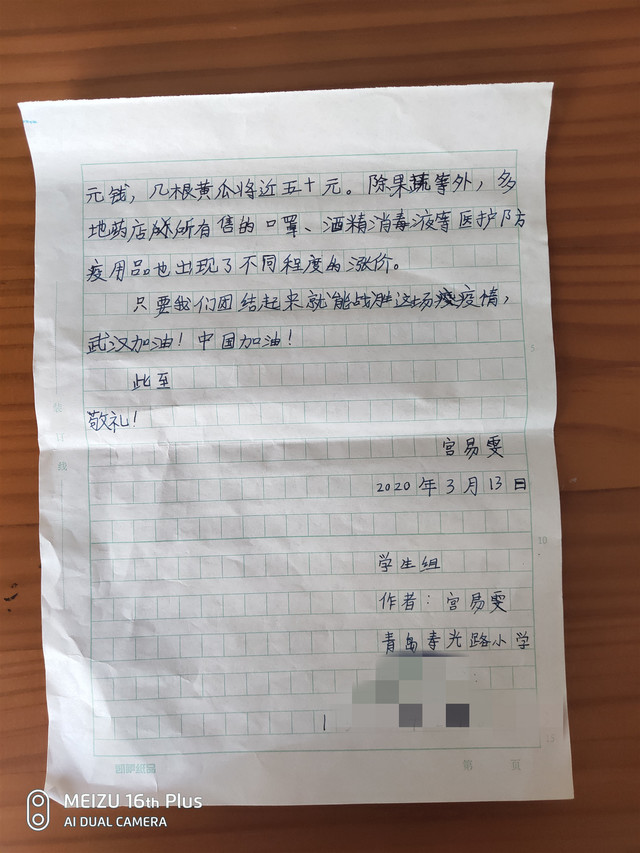 元钱，几根黄瓜将近五十元。除果蔬等外，多
地药店所有售的口罩、酒精消毒液等医护防
疫用品也出现了不同程度的涨价。
只要我们团结起来就能战胜这场疫情，
武汉加油！中国加油！
此至
敬礼！
宫易雯
2020年3月13日
学生组
作者：宫易雯
青岛寿光路小学
1
装
订
线
5
10
15
第 页
MEIZU 16th Plus
AI DUAL CAMERA